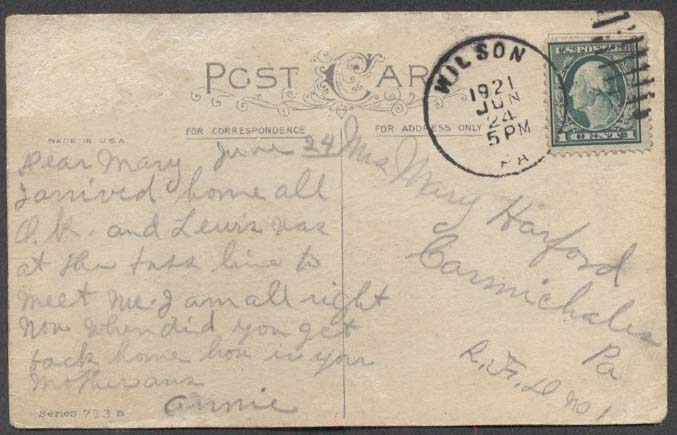 POST CARD
WILSON
1921
JUN
24
5 PM
PA
U.S. POSTAGE
1 CENT 1
FOR CORRESPONDENCE
FOR ADDRESS ONLY
MADE IN U.S.A.
June 24
Dear Mary
I arrived home all
O.K. and Lewis was
at the buss line to
meet me. I am all right
now when did you get
back home how is your
Mother ans
Annie
Mrs Mary Harford
Carmichales
Pa
R.F.D no 1
Series 713 B